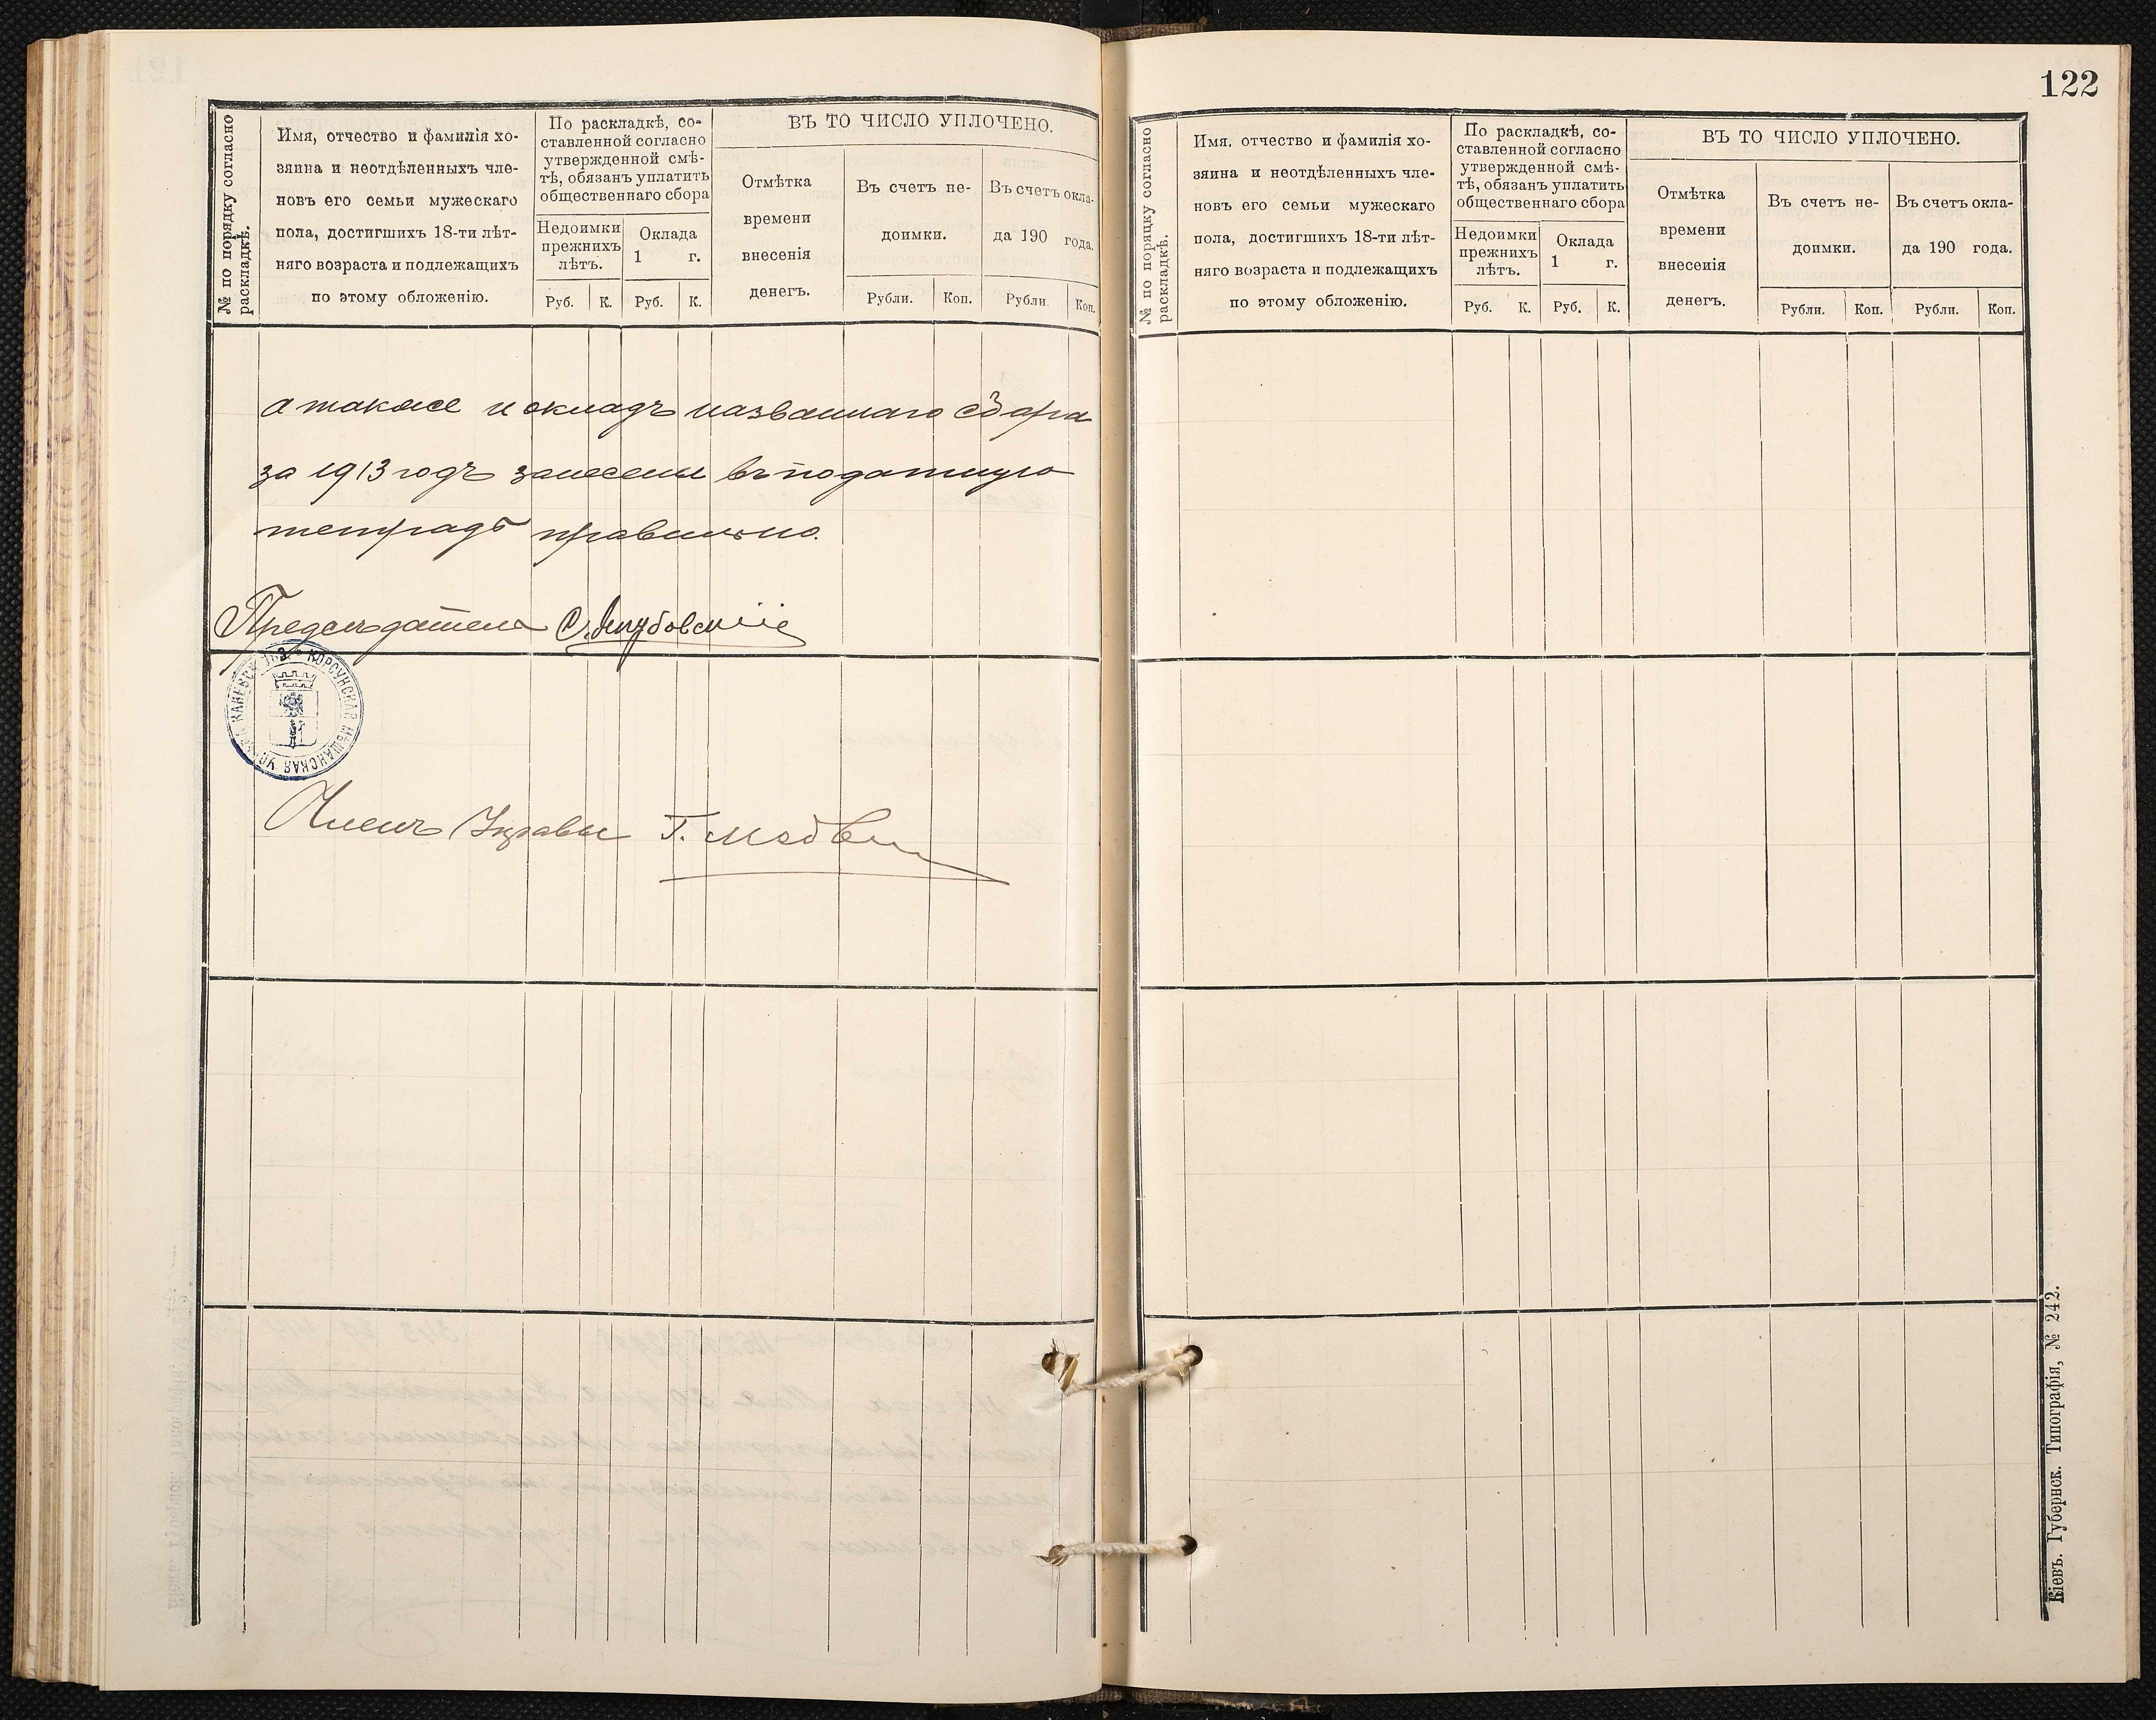 № по порядку согласно
раскладкѣ.
Имя, отчество и фамилія хо-
зяина и неотдѣленныхъ чле-
новъ его семьи мужескаго
пола, достигшихъ 18-ти лѣт-
няго возраста и подлежащихъ
по этому обложенію.
По раскладкѣ, со-
ставленной согласно
утвержденной смѣ-
тѣ, обязанъ уплатить
общественнаго сбора
Недоимки
прежнихъ
лѣтъ.
Оклада
1 г.
Руб. К. Руб. К.
ВЪ ТО ЧИСЛО УПЛОЧЕНО.
Отмѣтка
времени
внесенія
денегъ.
Въ счетъ не-
доимки.
Въ счетъ окла-
да 190 года.
Рубли. Коп. Рубли. Коп.
а также и окладъ названнаго сбора
за 1913 годъ занесены въ податную
тетрадь правильно.
Предсѣдатель С. Якубовскій
КОРСУНСКАЯ МѢЩАНСКАЯ УПРАВА КАНЕВСК. УѢЗ.
Членъ Управы Г.
122
№ по порядку согласно
раскладкѣ.
Имя, отчество и фамилія хо-
зяина и неотдѣленныхъ чле-
новъ его семьи мужескаго
пола, достигшихъ 18-ти лѣт-
няго возраста и подлежащихъ
по этому обложенію.
По раскладкѣ, со-
ставленной согласно
утвержденной смѣ-
тѣ, обязанъ уплатить
общественнаго сбора
Недоимки
прежнихъ
лѣтъ.
Оклада
1 г.
Руб. К. Руб. К.
ВЪ ТО ЧИСЛО УПЛОЧЕНО.
Отмѣтка
времени
внесенія
денегъ.
Въ счетъ не-
доимки.
Въ счетъ окла-
да 190 года.
Рубли. Коп. Рубли. Коп.
Кіевъ. Губернск. Типографія, № 242.